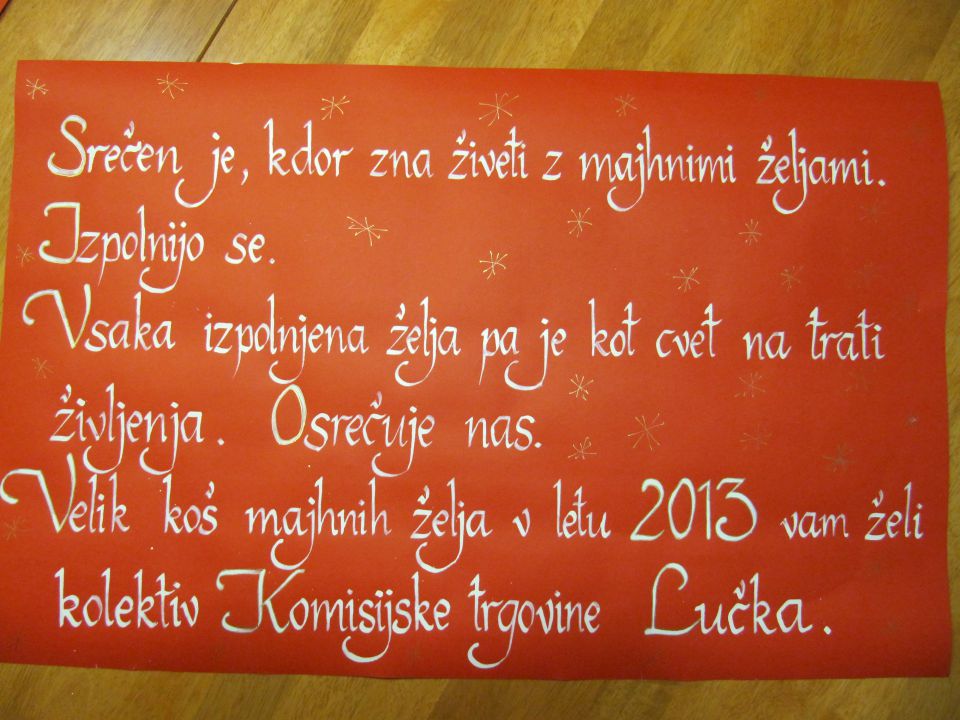 Srečen je, kdor zna živeti z majhnimi željami.
Izpolnijo se.
Vsaka izpolnjena želja pa je kot cvet na trati
življenja. Osrečuje nas.
Velik koš majhnih želja v letu 2013 vam želi
kolektiv Komisijske trgovine Lučka.